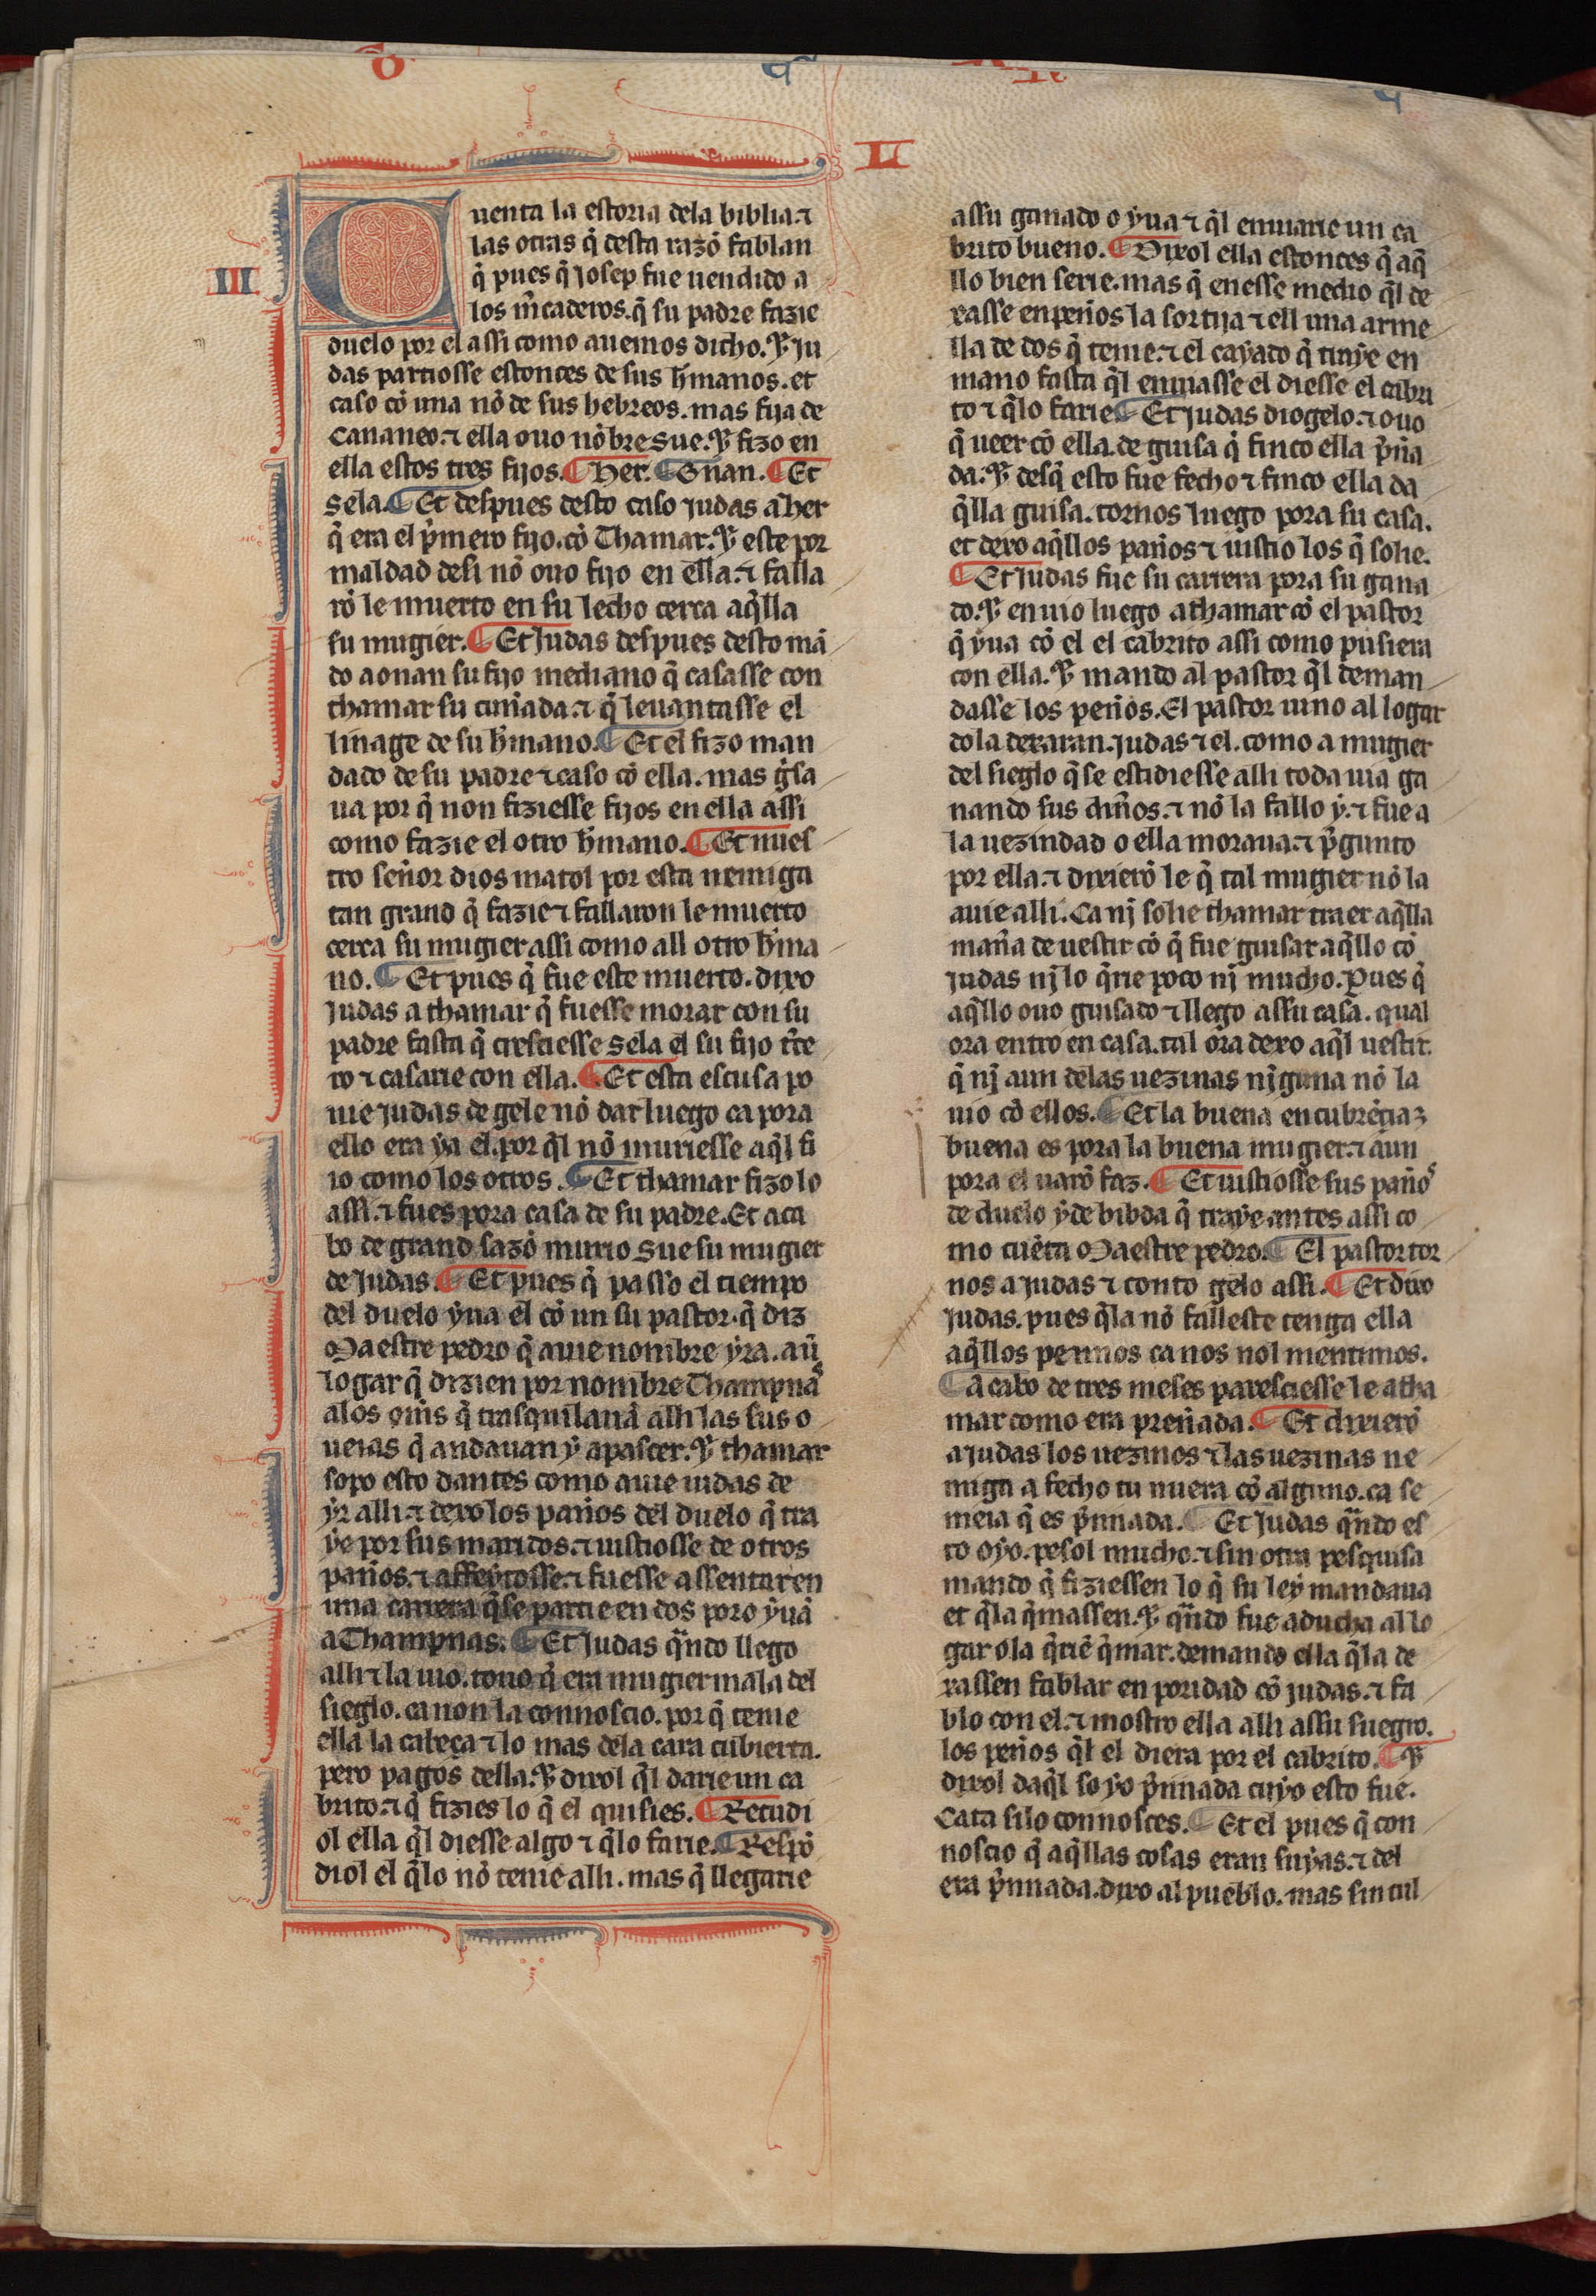 II
III
Cuenta la estoria dela biblia. ⁊
las otras q̃ desta razõ fablan
q̃ pues q̃ josep fue uendido a
los m̃caderos. q̃ su padre fazie
duelo por el assi como auemos dicho. ⁊ ju
das partiosse estonces de sus h̃manos. et
caso cõ una nõ de sus hebreos. mas fija de
Cananeo. ⁊ ella ouo nõbre sue. ⁊ fizo en
ella estos tres fijos. ¶ Her. ¶ Onan. ¶ Et
sela. ¶ Et despues desto caso judas a her
q̃ era el p̃mero fijo. cõ Thamar. ⁊ este por
maldad desi nõ ouo fijo en ella. ⁊ falla
rõ le muerto en su lecho cerca aq̃lla
su mugier. ¶ Et Judas despues desto mã
do a onan su fijo mediano q̃ casasse con
thamar su cuñada. ⁊ q̃ leuantasse el
linage de su h̃mano. ¶ Et el fizo man
dado de su padre ⁊ caso cõ ella. mas g̃sa
ua por q̃ non fiziesse fijos en ella assi
como fazie el otro h̃mano. ¶ Et nues
tro señor dios matol por esta nemiga
tan grand q̃ fazie ⁊ fallaron le muerto
cerca su mugier assi como all otro h̃ma
no. ¶ Et pues q̃ fue este muerto. dixo
Judas a thamar q̃ fuesse morar con su
padre fasta q̃ cresciesse sela el su fijo t̃ce
ro ⁊ casarie con ella. ¶ Et esta escusa po
nie Judas de gele nõ dar luego ca pora
ello era ya el. por q̃l nõ muriesse aq̃l fi
io como los otros. ¶ Et thamar fizo lo
assi. ⁊ fues pora casa de su padre. Et aca
bo de grand sazõ murio sue su mugier
de Judas. ¶ Et pues q̃ passo el tiempo
del duelo yua el cõ un su pastor. q̃ diz
Maestre pedro q̃ auie nombre yra. a ũ
logar q̃ dizien por nombre Thampnas
alos om̃s q̃ trasquilauã alli las sus o
ueias q̃ andauan y a pascer. ⁊ thamar
sopo esto dantes como auie iudas de
yr alli. ⁊ dexo los paños del duelo q̃ tra
ye por sus maridos. ⁊ uistiosse de otros
paños. ⁊ affeytosse. ⁊ fuesse assentar en
una carrera q̃ se partie en dos poro yuã
a Thampnas. ¶ Et Judas q̃ndo llego
alli ⁊ la uio. touo q̃ era mugier mala del
sieglo. ca non la connoscio. por q̃ tenie
ella la cabeça ⁊ lo mas dela cara cubierta.
pero pagos della. ⁊ dixol q̃l darie un ca
brito. ⁊ q̃ fizies lo q̃ el quisies. ¶ Recudi
ol ella q̃l diesse algo ⁊ q̃lo farie. ¶ Respõ
diol el q̃lo nõ tenie alli. mas q̃ llegarie
assu ganado o yua ⁊ q̃l enuiarie un ca
brito bueno. ¶ Dixol ella estonces q̃ aq̃
llo bien serie. mas q̃ en esse medio q̃l de
xasse en peños la sortija ⁊ ell una arme
lla de dos q̃ tenie. ⁊ el cayado q̃ traye en
mano fasta q̃l enuiasse el diesse el cabri
to ⁊ q̃lo farie. ¶ Et Judas diogelo. ⁊ ouo
q̃ ueer cõ ella. de guisa q̃ finco ella p̃ña
da. ⁊ desq̃ esto fue fecho ⁊ finco ella da
q̃lla guisa. tornos luego pora su casa.
et dexo aq̃llos paños ⁊ uistio los q̃ solie.
¶ Et Judas fue su carrera pora su gana
do. ⁊ enuio luego a thamar cõ el pastor
q̃ yua cõ el el cabrito assi como pusiera
con ella. ⁊ mando al pastor q̃l deman
dasse los peños. El pastor uino al logar
dola dexaran. Judas ⁊ el. como a mugier
del sieglo q̃ se estidiesse alli toda uia ga
nando sus diños. ⁊ nõ la fallo y. ⁊ fue a
la uezindad o ella moraua. ⁊ p̃gunto
por ella. ⁊ dixierõ le q̃ tal mugier nõ la
auie alli. Ca nj solie thamar traer aq̃lla
mañã de uestir cõ q̃ fue guisar aq̃llo cõ
Judas nj lo q̃rie poco nj mucho. Pues q̃
aq̃llo ouo guisado ⁊ llego assu casa. qual
ora entro en casa. tal ora dexo aq̃l uestir.
q̃ nj aun delas uezinas nj guna nõ la
uio cõ ellos. ¶ Et la buena encubrẽcia z
buena es pora la buena mugier. ⁊ aun
pora el uarõ faz. ¶ Et uistiosse sus paños
de duelo y de bibda q̃ traye antes assi co
mo cuẽta Maestre pedro. ¶ El pastor tor
nos a Judas ⁊ conto gelo assi. ¶ Et dixo
Judas. pues q̃la nõ falleste tenga ella
aq̃llos pennos ca nos nol mentimos.
¶ A cabo de tres meses paresciesse le a tha
mar como era preñada. ¶ Et dixierõ
a Judas los uezinos ⁊ las uezinas ne
miga a fecho tu nuera cõ alguno. ca se
meia q̃ es p̃nnada. ¶ Et Judas q̃ndo es
to oyo. pesol mucho. ⁊ sin otra pesquisa
mando q̃ fiziessen lo q̃ su ley mandaua
et q̃la q̃massen. ⁊ q̃ndo fue aducha al lo
gar o la q̃riẽ q̃mar. demando ella q̃la de
xassen fablar en poridad cõ judas. ⁊ fa
blo con el. ⁊ mostro ella alli assu suegro.
los peños q̃l el diera por el cabrito. ¶ ⁊
dixol daq̃l so yo p̃nnada cuyo esto fue.
Cata silo connosces. ¶ Et el pues q̃ con
noscio q̃ aq̃llas cosas eran suyas. ⁊ del
era p̃nnada. dixo al pueblo. mas sin cul